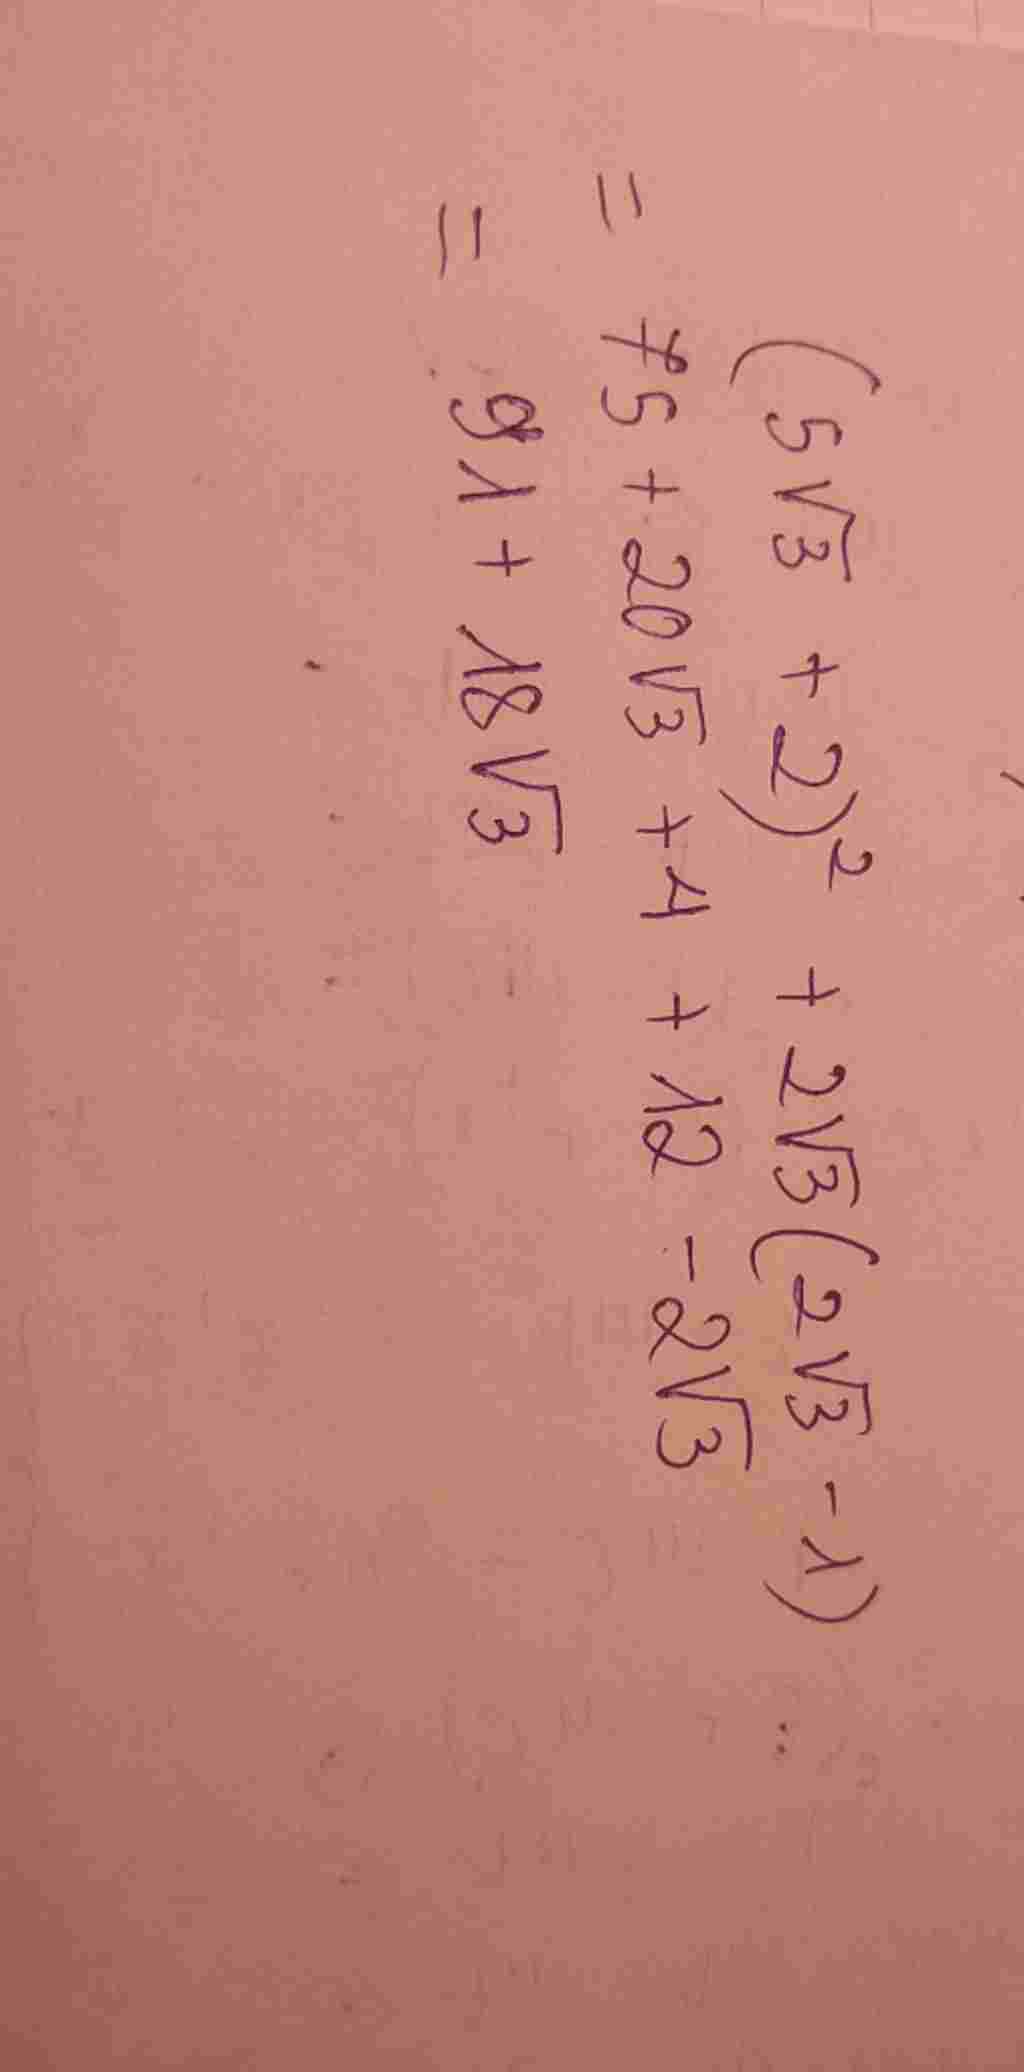 (5√3 + 2)² + 2√3(2√3 - 1)
= 75 + 20√3 + 4 + 12 - 2√3
= 91 + 18√3